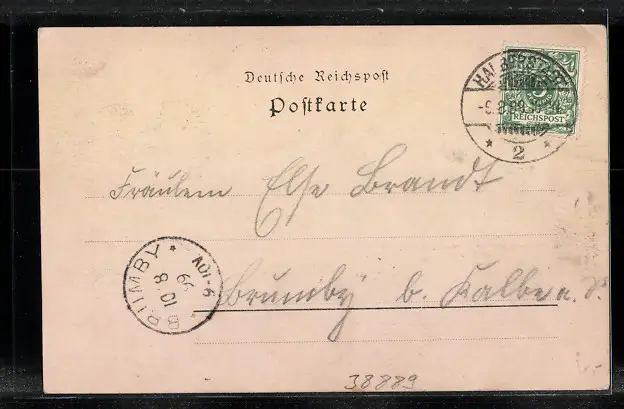 Deutsche Reichspost
Postkarte
HALBERSTADT
-9.8.99.
* 2 *
5
REICHSPOST
Fräulein Else Brandt
BRUMBY *
10 8 99
Brumby b. Kalbe a. S.
38889